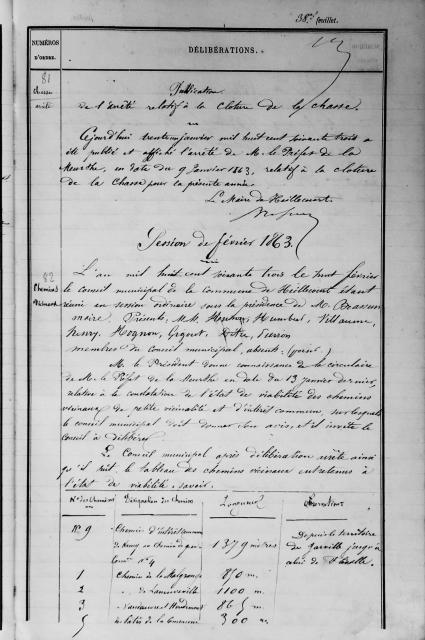 38.e feuillet.
NUMÉROS D'ORDRE.
DÉLIBÉRATIONS.
81
chasse
Publication
de l'arrêté relatif à la cloture de la chasse.
Aujourd'hui trente un janvier mil huit cent soixante trois a
été publié et affiché l'arrêté de M. le Préfet de la
Meurthe, en date du 9 Janvier 1863, relatif à la cloture
de la chasse pour la présente année.
Le Maire de Heillecourt
Session de février 1863.
82
Chemins
L'an mil huit cent soixante trois le huit février
le conseil municipal de la commune de Heillecourt étant
réuni en session ordinaire sous la présidence de M.
maire. Présents, M.M. Humbert, Villaume,
Henry, Hognon, Pierron
membres du conseil municipal, absents:
M. le Président donne connaissance de la circulaire
de M. le Préfet de la Meurthe en date du 13 janvier dernier,
relative à la constatation de l'état de viabilité des chemins
vicinaux de petite vicinalité et d'intérêt commun, sur lesquels
le conseil municipal doit donner son avis, et il invite le
Conseil à délibérer
Le Conseil municipal après délibération arrête ainsi
qu'il suit, le tableau des chemins vicinaux entretenus à
l'état de viabilité, savoir.
Nos des Chemins Désignation des Chemins Longueur Observations
No 9 Chemin d'intérêt commun 1379 mètres Depuis le territoire
de jusqu'à
No 4
1 Chemin de la Malgrange 850 m.
2 " de Laneuveville 1100 m.
3 " 865 m.
5 300 m.